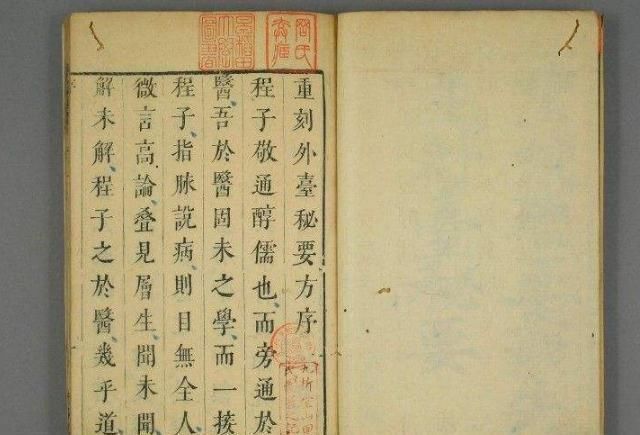 重刻外臺秘要方序
程子敬通醇儒也、而旁通於
醫、吾於醫固未之學、而一接
程子、指脉說病、則目無全人、
微言高論、叠見層生、聞未聞、
解未解、程子之於醫、幾乎道